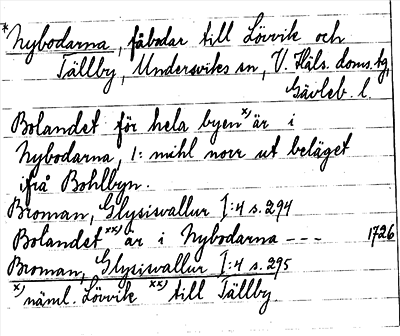 *Nybodarna, fäbodar till Lövvik och
Tällby, Undersviks sn, V. Häls. doms. tg,
Gävleb. l.
Bolandet för hela byen x) är i
Nybodarna, 1: mihl norr ut beläget
ifrå Bohlbyn.
Broman, Glysisvallur I:4 s. 294
Bolandet xx) är i Nybodarna --- 1726
Broman, Glysisvallur I:4 s. 295
x) näml. Lövvik xx) till Tällby.